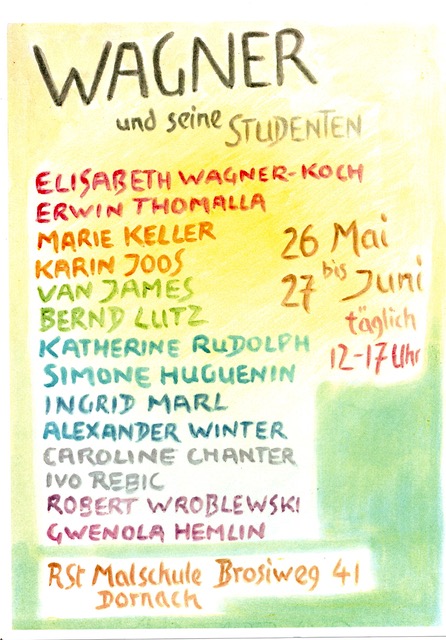 WAGNER
und seine STUDENTEN
ELISABETH WAGNER-KOCH
ERWIN THOMALLA
MARIE KELLER
KARIN JOOS
VAN JAMES
BERND LUTZ
KATHERINE RUDOLPH
SIMONE HUGUENIN
INGRID MARL
ALEXANDER WINTER
CAROLINE CHANTER
IVO REBIC
ROBERT WROBLEWSKI
GWENOLA HEMLIN
26 Mai
bis
27 Juni
täglich
12-17 Uhr
RSt Malschule Brosiweg 41
Dornach